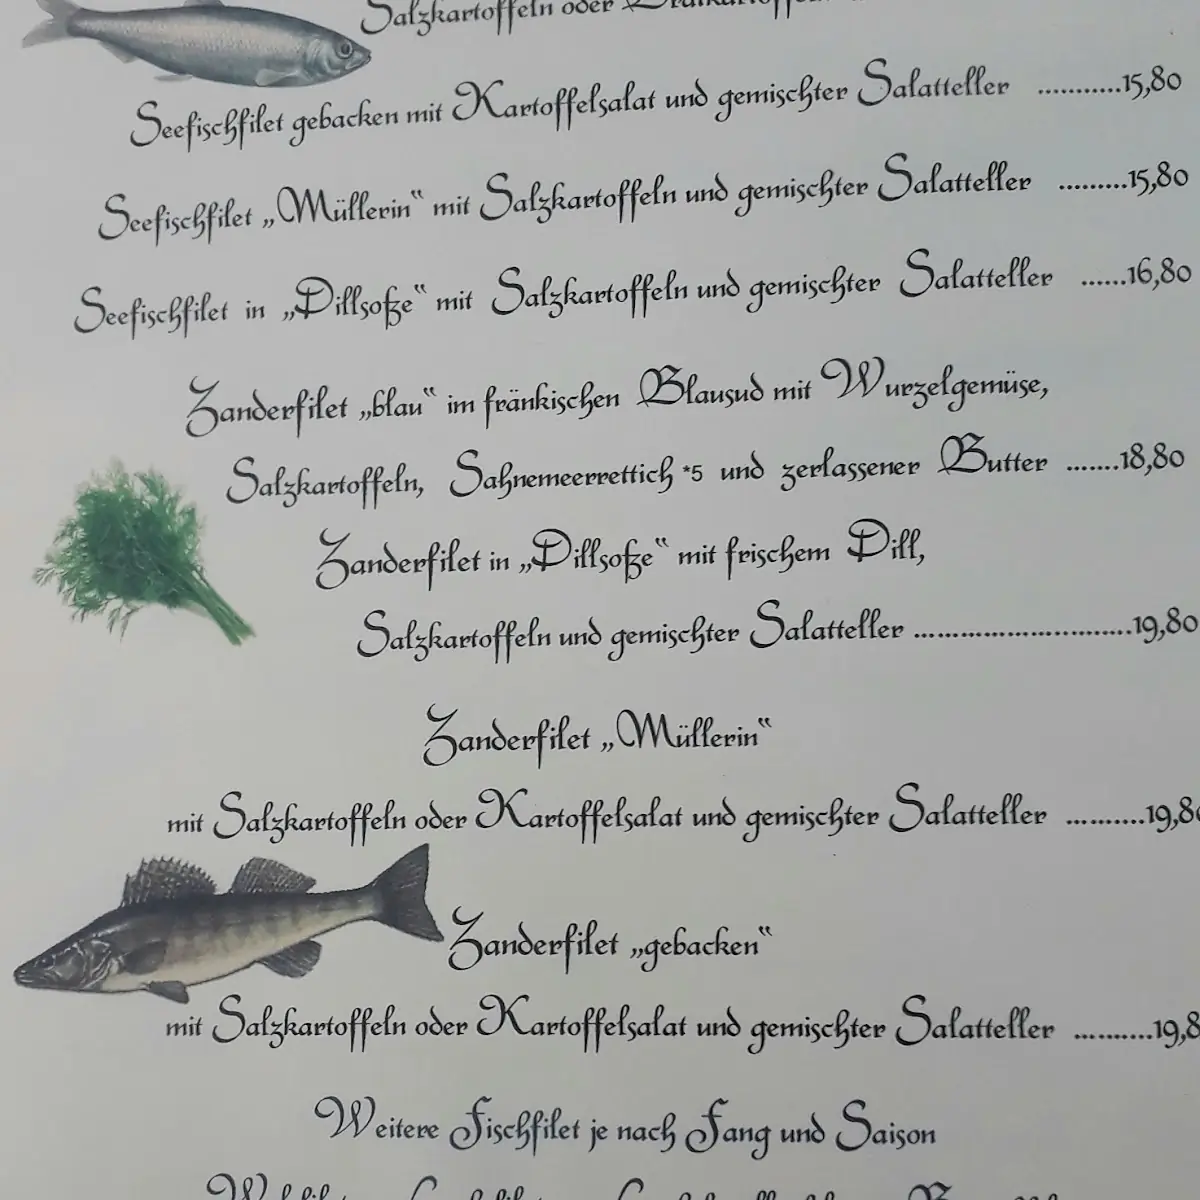 Salzkartoffeln oder
Seefischfilet gebacken mit Kartoffelsalat und gemischter Salatteller ...........15,80
Seefischfilet „Müllerin“ mit Salzkartoffeln und gemischter Salatteller .........15,80
Seefischfilet in „Dillsoße“ mit Salzkartoffeln und gemischter Salatteller ......16,80
Zanderfilet „blau“ im fränkischen Blausud mit Wurzelgemüse,
Salzkartoffeln, Sahnemeerrettich *5 und zerlassener Butter .......18,80
Zanderfilet in „Dillsoße“ mit frischem Dill,
Salzkartoffeln und gemischter Salatteller ............................19,80
Zanderfilet „Müllerin“
mit Salzkartoffeln oder Kartoffelsalat und gemischter Salatteller ..........19,8
Zanderfilet „gebacken“
mit Salzkartoffeln oder Kartoffelsalat und gemischter Salatteller ..........19,8
Weitere Fischfilet je nach Fang und Saison